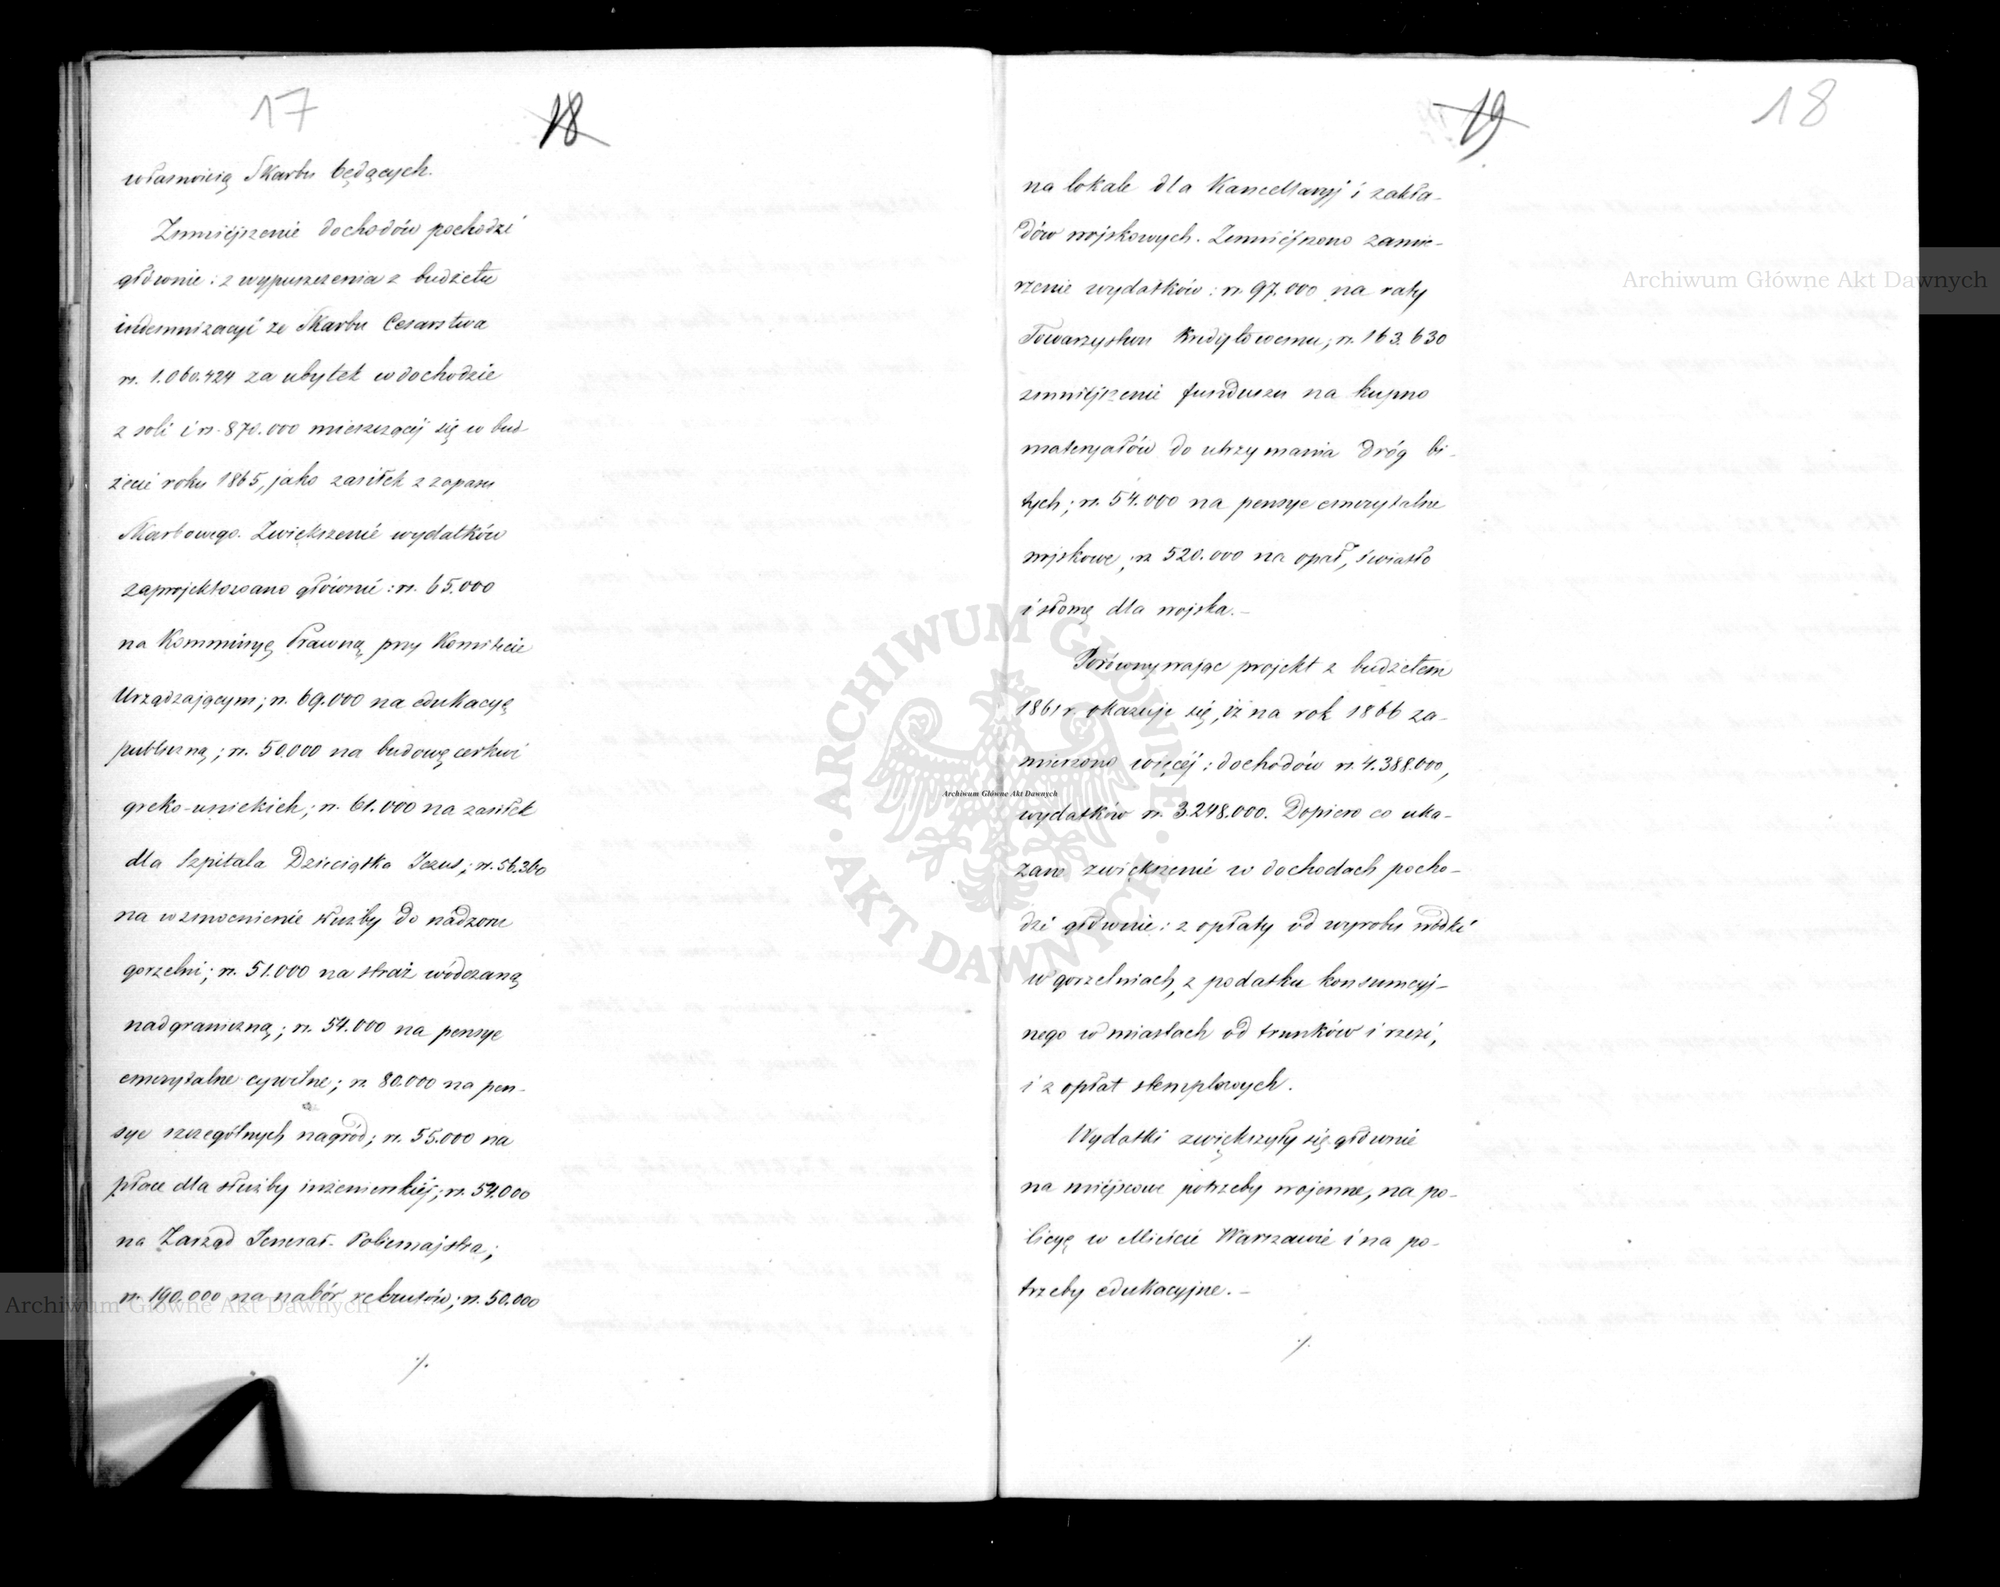 17
18
własnością Skarbu będących.
Zmniéjszenie dochodów pochodzi
głównie: z wypuszczenia z budżetu
indemnizacyi ze Skarbu Cesarstwa
rs. 1.060.424 za ubytek w dochodzie
z soli i rs. 870.000 mieszczącéj się w bud-
żecie roku 1865, jako zasiłek z zapasu
Skarbowego. Zwiększenie wydatków
zaprojektowano głównie: rs. 65.000
na Kommissyę Prawną przy Komitecie
Urządzającym; rs. 69.000 na edukacyę
publiczną; rs. 50.000 na budowę cerkwi
greko-unickich; rs. 61.000 na zasiłek
dla Szpitala Dzieciątka Jezus; rs. 56.360
na wzmocnienie służby do nadzoru
gorzelni; rs. 51.000 na straż wódczaną
nadgraniczną; rs. 54.000 na pensye
emerytalne cywilne; rs. 80.000 na pen-
sye szczególnych nagród; rs. 55.000 na
płace dla służby inżenierskiéj; rs. 54.000
na Zarząd Jenerał-Policmajstra;
rs. 190.000 na nabór rekrutów; rs. 50.000
./.
19
18
na lokale dla Kancellaryj i zakła-
dów wojskowych. Zmniéjszono zamie-
rzenie wydatków: rs. 97.000 na raty
Towarzystwu Kredytowemu; rs. 163.630
zmniéjszenie funduszu na kupno
materyałów do utrzymania dróg bi-
tych; rs. 54.000 na pensye emerytalne
wojskowe; rs. 520.000 na opał, światło
i słomę dla wojska.-
Porównywając projekt z budżetem
1861 r. okazuje się, iż na rok 1866 za-
mierzono więcéj: dochodów rs. 4.388.000,
wydatków rs. 3.248.000. Dopiero co uka-
zane zwiększenie w dochodach pocho-
dzi głównie: z opłaty od wyrobu wódki
w gorzelniach, z podatku konsumcyj-
nego w miastach od trunków i rzezi,
i z opłat stemplowych.
Wydatki zwiększyły się głównie
na miéjscowe potrzeby wojenne, na po-
licyę w Mieście Warszawie i na po-
trzeby edukacyjne.-
./.
Archiwum Główne Akt Dawnych
Archiwum Główne Akt Dawnych
Archiwum Główne Akt Dawnych
ARCHIWUM GŁÓWNE AKT DAWNYCH